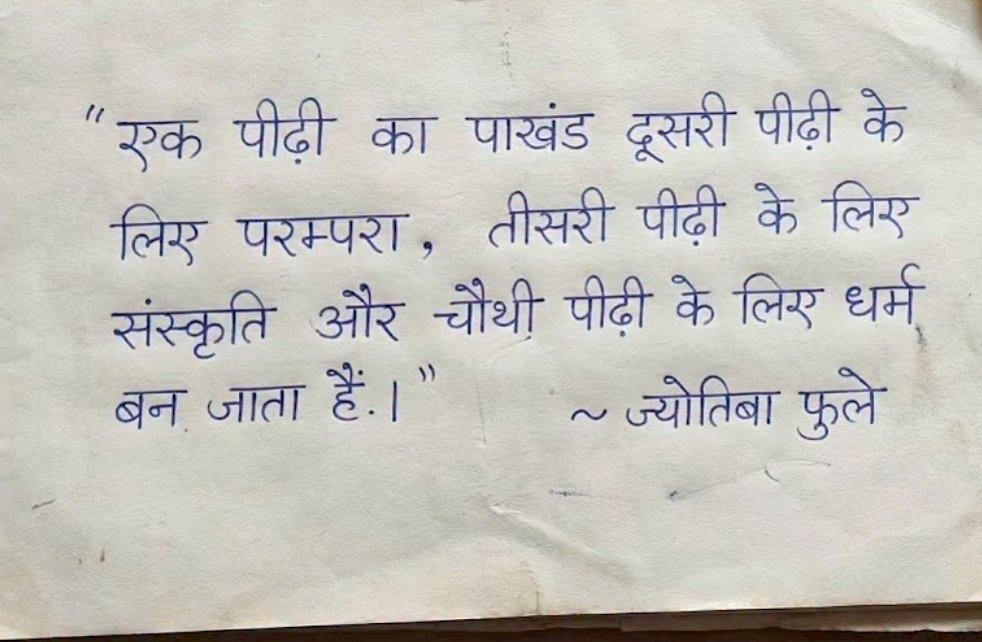 "एक पीढ़ी का पाखंड दूसरी पीढ़ी के
लिए परम्परा, तीसरी पीढ़ी के लिए
संस्कृति और चौथी पीढ़ी के लिए धर्म
बन जाता हैं.।"
~ ज्योतिबा फुले